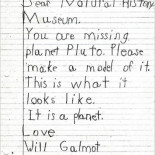 Dear Natural History
Museum.
You are missing
planet Pluto. Please
make a model of it.
This is what it
looks like.
It is a planet.
Love
Will Galmot